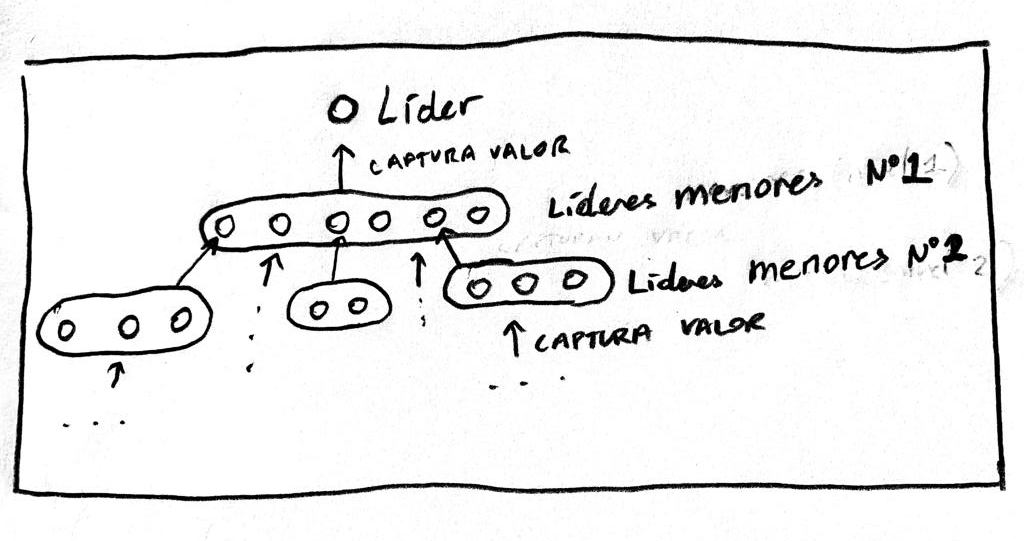 Líder
CAPTURA VALOR
Líderes menores Nº1
Líderes menores Nº2
CAPTURA VALOR